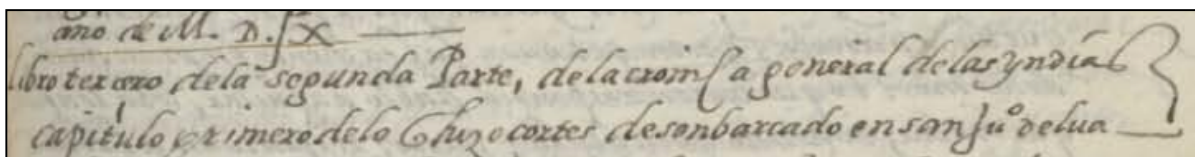 ano de M. D. LX
libro terçero dela segunda Parte, dela cronica general delas yndias
capitulo primero delo q hizo cortes desenbarcado en san juº de lua